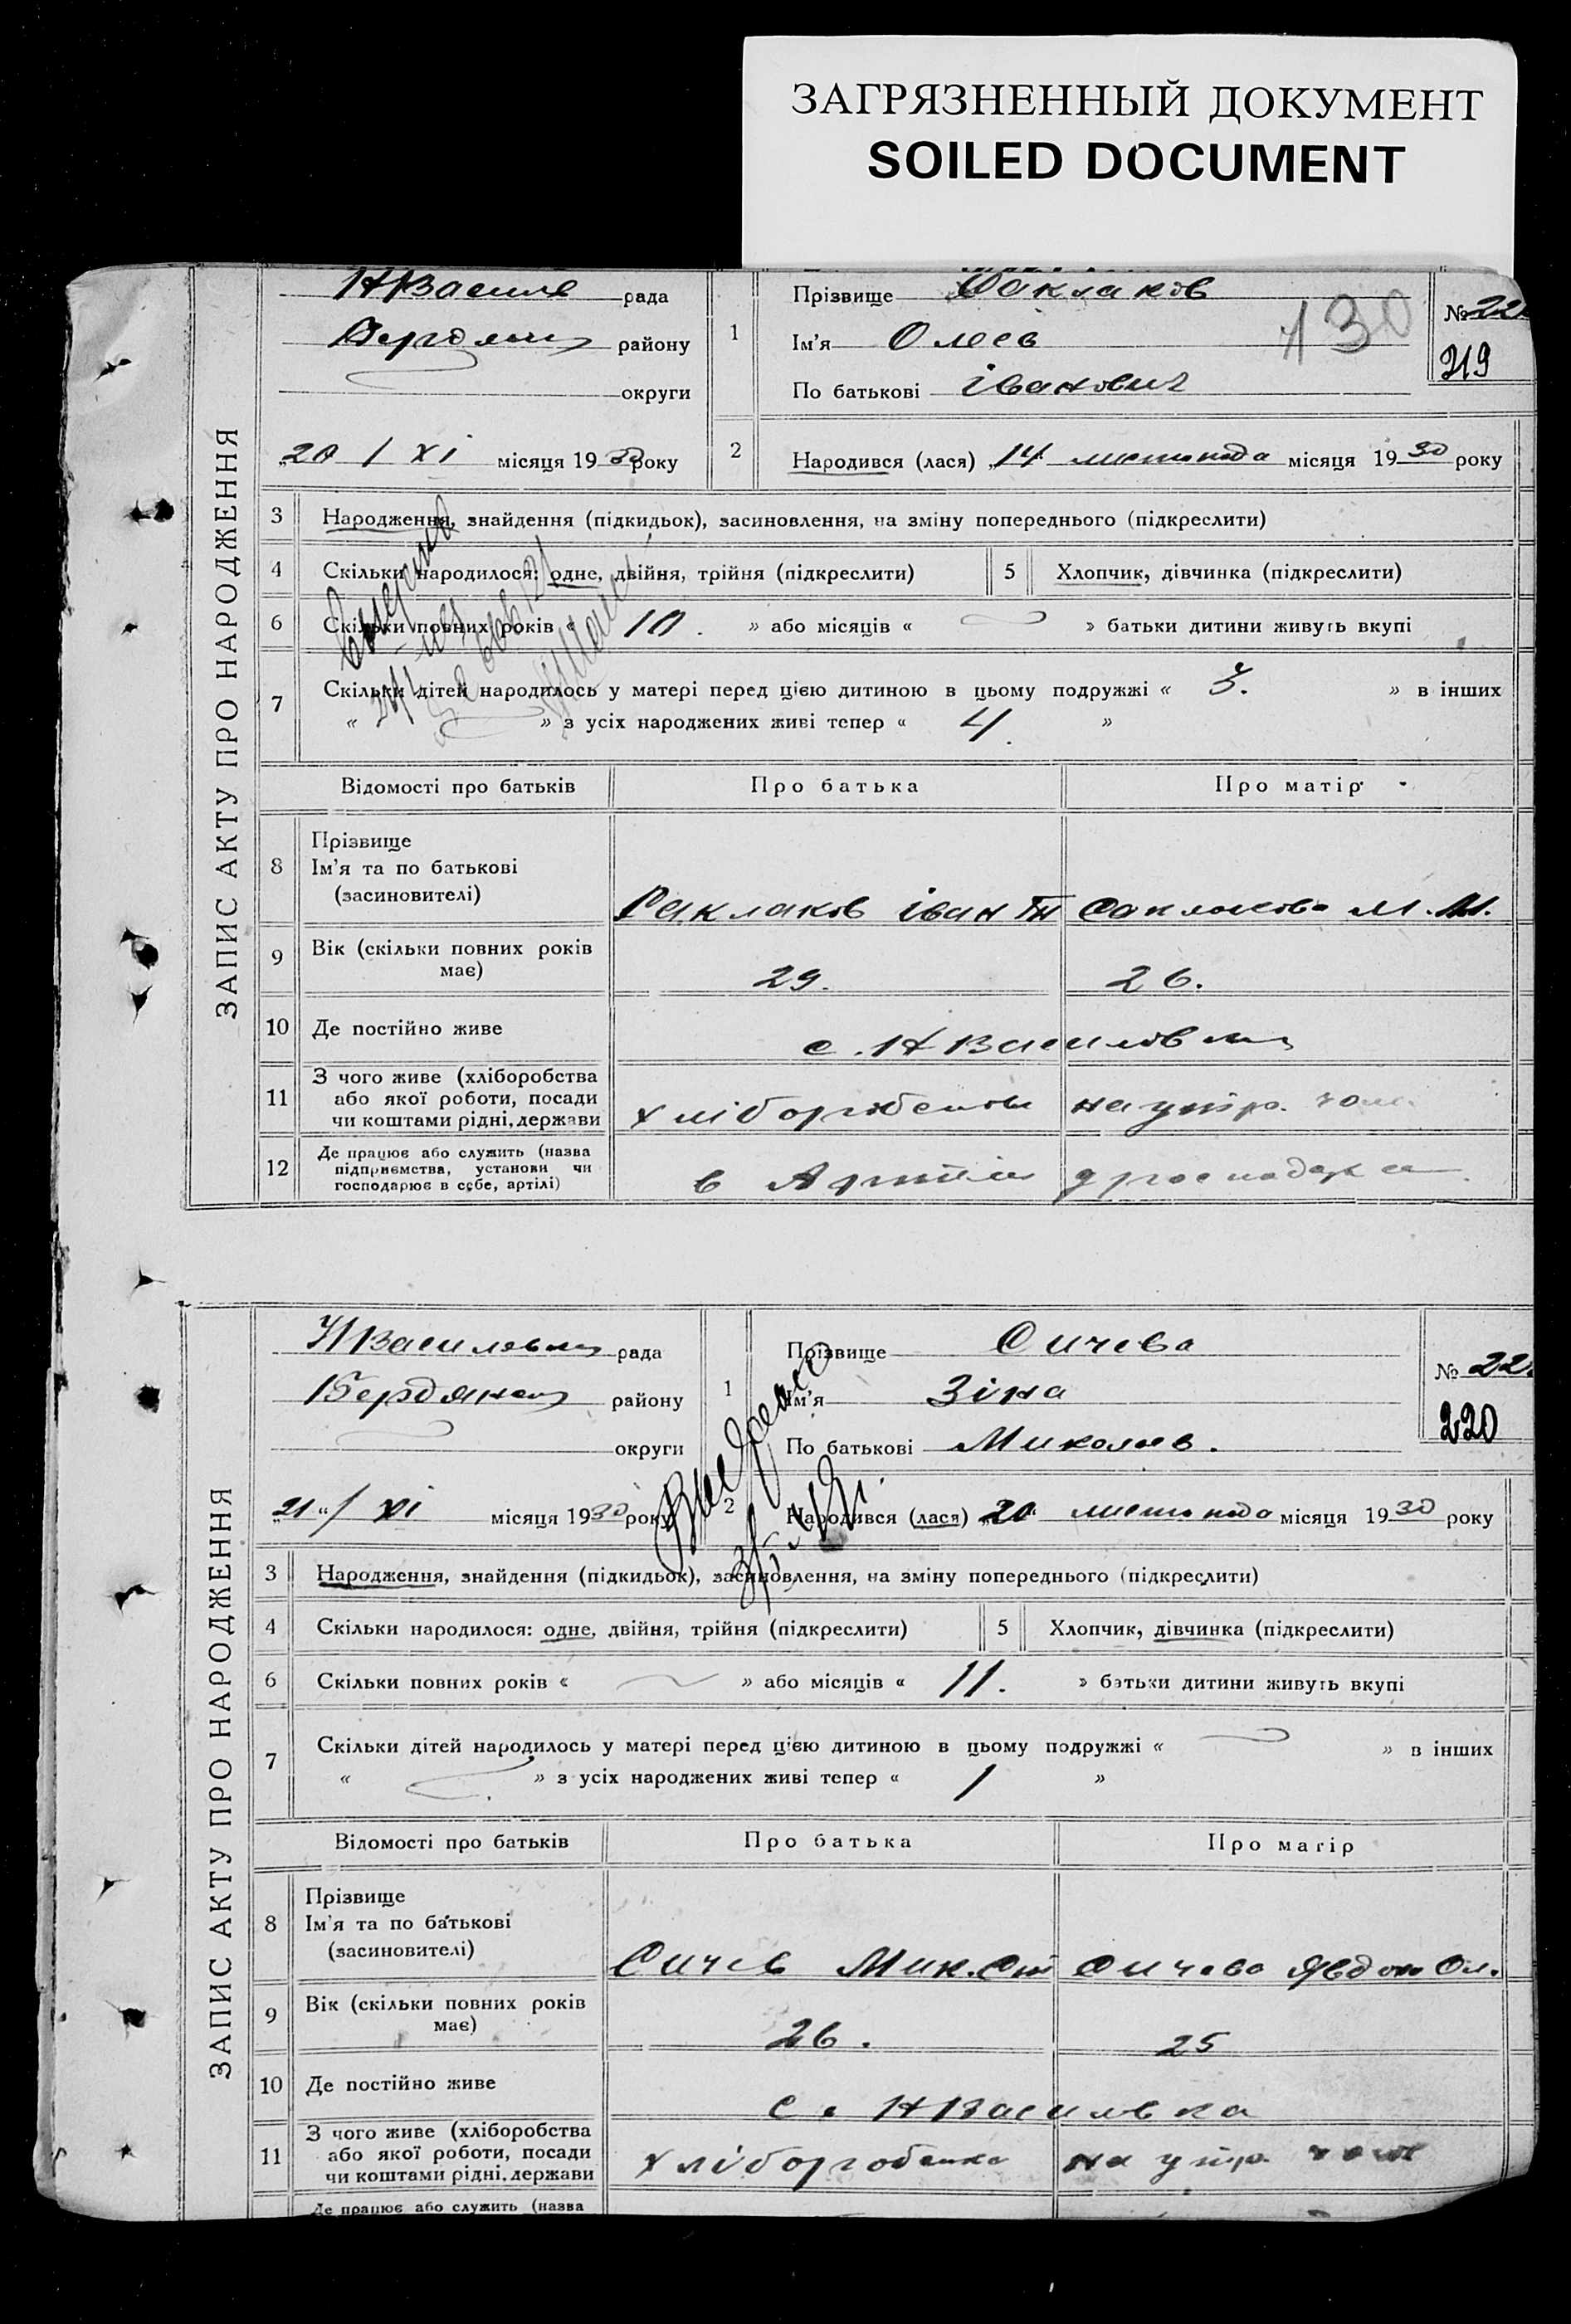 ЗАГРЯЗНЕННЫЙ ДОКУМЕНТ
SOILED DOCUMENT
ЗАПИС АКТУ ПРО НАРОДЖЕННЯ
НВасилв рада
району
округи
20 / XI місяця 1930 року
1
Прізвище Саклаков
Ім'я Олесів
По батькові Іванович
130
№ 22
219
2
Народився (лася) „14" листопада місяця 1930 року
3 Народження, знайдення (підкидьок), засиновлення, на зміну попереднього (підкреслити)
4 Скільки народилося: одне, двійня, трійня (підкреслити) 5 Хлопчик, дівчинка (підкреслити)
6 Скільки повних років « 10. » або місяців « » батьки дитини живуть вкупі
7 Скільки дітей народилось у матері перед цією дитиною в цьому подружжі « 3. » в інших
« » з усіх народжених живі тепер « 4. »
Відомості про батьків Про батька Про матір
8 Прізвище
Ім'я та по батькові
(засиновителі)
Саклаков Іван Саклакова М. М.
9 Вік (скільки повних років
має) 29. 26.
10 Де постійно живе с. НВасиловка
11 З чого живе (хліборобства
або якої роботи, посади
чи коштами рідні, держави
хліборобства на утр. чол.
12 Де працює або служить (назва
підприємства, установи чи
господарює в себе, артілі)
в Артілі
ЗАПИС АКТУ ПРО НАРОДЖЕННЯ
НВасиловка рада
Бердянськ району
округи
21 / XI місяця 1930 року
1
Прізвище Сичева
Ім'я Зіна
По батькові Миколаев.
№ 22
220
2
Народився (лася) „20" листопада місяця 1930 року
3 Народження, знайдення (підкидьок), засиновлення, на зміну попереднього (підкреслити)
4 Скільки народилося: одне, двійня, трійня (підкреслити) 5 Хлопчик, дівчинка (підкреслити)
6 Скільки повних років « » або місяців « 11. » батьки дитини живуть вкупі
7 Скільки дітей народилось у матері перед цією дитиною в цьому подружжі « » в інших
« » з усіх народжених живі тепер « 1 »
Відомості про батьків Про батька Про матір
8 Прізвище
Ім'я та по батькові
(засиновителі)
Сичев Мик. Ст Сичева Явдок Ол.
9 Вік (скільки повних років
має) 26. 25
10 Де постійно живе с. НВасиловка
11 З чого живе (хліборобства
або якої роботи, посади
чи коштами рідні, держави
хліборобства на утр. чол
Де працює або служить (назва